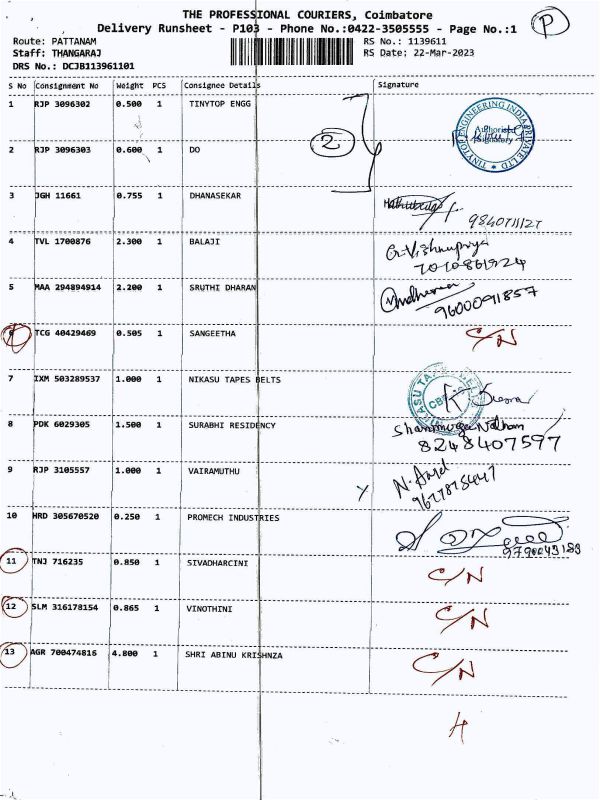 THE PROFESSIONAL COURIERS, Coimbatore
Delivery Runsheet - P103 - Phone No.:0422-3505555 - Page No.:1
P
Route: PATTANAM RS No.: 1139611
Staff: THANGARAJ RS Date: 22-Mar-2023
DRS No.: DCJB113961101
S No Consignment No Weight PCS Consignee Details Signature
1 RJP 3096302 0.500 1 TINYTOP ENGG
2
TINYTOP ENGINEERING INDIA PRIVATE LTD
Authorised
Signatory
2 RJP 3096303 0.600 1 DO
3 JGH 11661 0.755 1 DHANASEKAR
4 TVL 1700876 2.300 1 BALAJI G. Vishnupriya
5 MAA 294894914 2.200 1 SRUTHI DHARAN
9600091857
6 TCG 40429469 0.505 1 SANGEETHA C/N
7 IXM 503289537 1.000 1 NIKASU TAPES BELTS
8 PDK 6029305 1.500 1 SURABHI RESIDENCY
8248407597
9 RJP 3105557 1.000 1 VAIRAMUTHU
10 HRD 305670520 0.250 1 PROMECH INDUSTRIES
11 TNJ 716235 0.850 1 SIVADHARCINI C/N
12 SLM 316178154 0.865 1 VINOTHINI C/N
13 AGR 700474816 4.800 1 SHRI ABINU KRISHNZA C/N